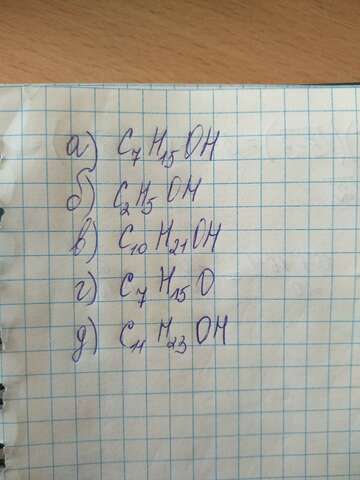 а) C₇H₁₅OH
б) C₂H₅OH
в) C₁₀H₂₁OH
г) C₇H₁₅O
д) C₁₁H₂₃OH